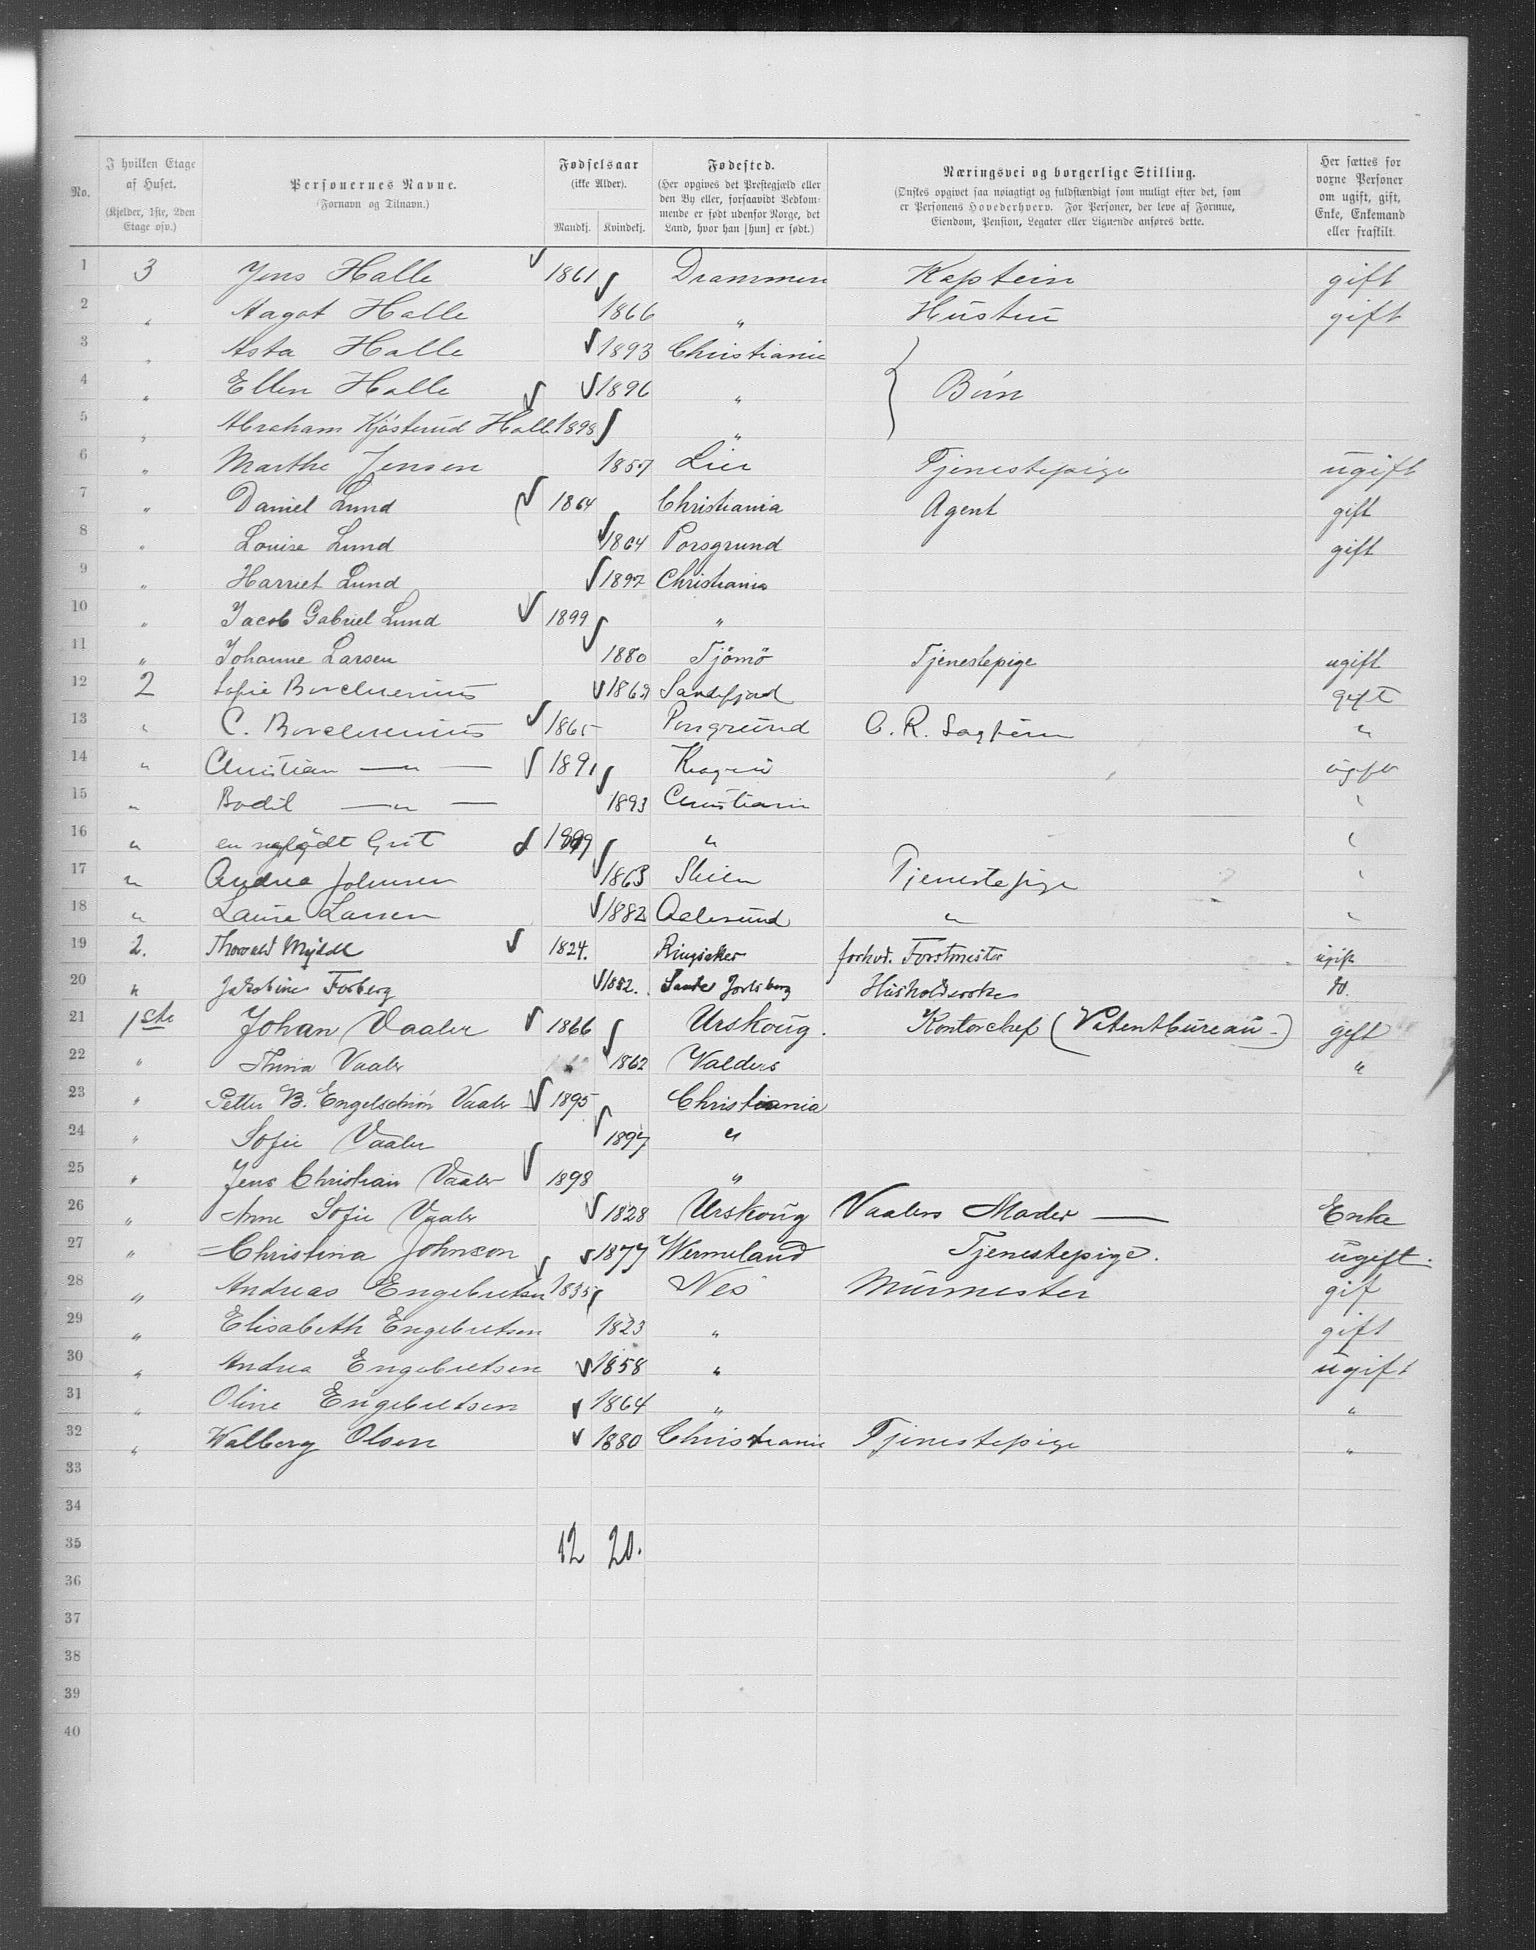 No. | I hvilken Etage af Huset. (Kjelder, 1ste, 2den Etage osv.) | Personernes Navne. (Fornavn og Tilnavn.) | Fødselsaar (ikke Alder). Mandkj. Kvindekj. | Fødested. (Her opgives det Prestegjæld eller den By eller, forsaavidt Vedkommende er født udenfor Norge, det Land, hvor han [hun] er født.) | Næringsvei og borgerlige Stilling. (Ønskes opgivet saa nøiagtigt og fuldstændigt som muligt efter det, som er Personens Hovederhverv. For Personer, der leve af Formue, Eiendom, Pension, Legater eller Lignende anføres dette. | Her sættes for vorne Personer om ugift, gift, Enke, Enkemand eller fraskilt.
1 3 Jens Halle 1861 Drammen Kaptein gift
2 " Aagot Halle 1866 " Hustru gift
3 " Asta Halle 1893 Christiania
4 " Ellen Halle 1896 " Börn
5 " Abraham Kjösterud Halle 1898 "
6 " Marthe Jensen 1857 Lier Tjenestepige ugift
7 " Daniel Lund 1864 Christiania Agent gift
8 " Louise Lund 1864 Porsgrund gift
9 " Harriet Lund 1897 Christiania
10 " Jacob Gabriel Lund 1899 "
11 " Johanne Larsen 1880 Tjömö Tjenestepige ugift
12 2 Sofie Borchrevinus 1869 Sandefjord gift
13 " C. Borchrevinus 1865 Porsgrund O. R. Sagförer "
14 " Christian — " — 1891 Kragerö ugift
15 " Bodil — " — 1893 Christiania "
16 " en nyfödt Gut 1899 " "
17 " Andrea Johnsen 1863 Skien Tjenestepige "
18 " Laura Larsen 1882 Aalesund " "
19 2. Thorvald Mejdell 1824. Ringsaker forhv. Forstmester ugift
20 " Jakobine Forberg 1882. Sande Jarlsberg Husholderske do.
21 1ste Johan Vaaler 1866 Urskoug. Kontorchef (Patentbureau-) gift
22 " Thina Vaaler 1862 Valders "
23 " Petter B. Engelschiön Vaaler 1895 Christiania
24 " Sofie Vaaler 1897 "
25 " Jens Christian Vaaler 1898 "
26 " Anne Sofie Vaaler 1828 Urskoug Vaalers Moder — Enke
27 " Christina Johnson 1877 Wermeland Tjenestepige. ugift.
28 " Andreas Engebretsen 1835 Nes Murmester gift
29 " Elisabeth Engebretsen 1823 " gift
30 " Andrea Engebretsen 1858 " ugift
31 " Oline Engebretsen 1864 " "
32 " Walborg Olsen 1880 Christiania Tjenestepige "
33
34
35 12 20.
36
37
38
39
40